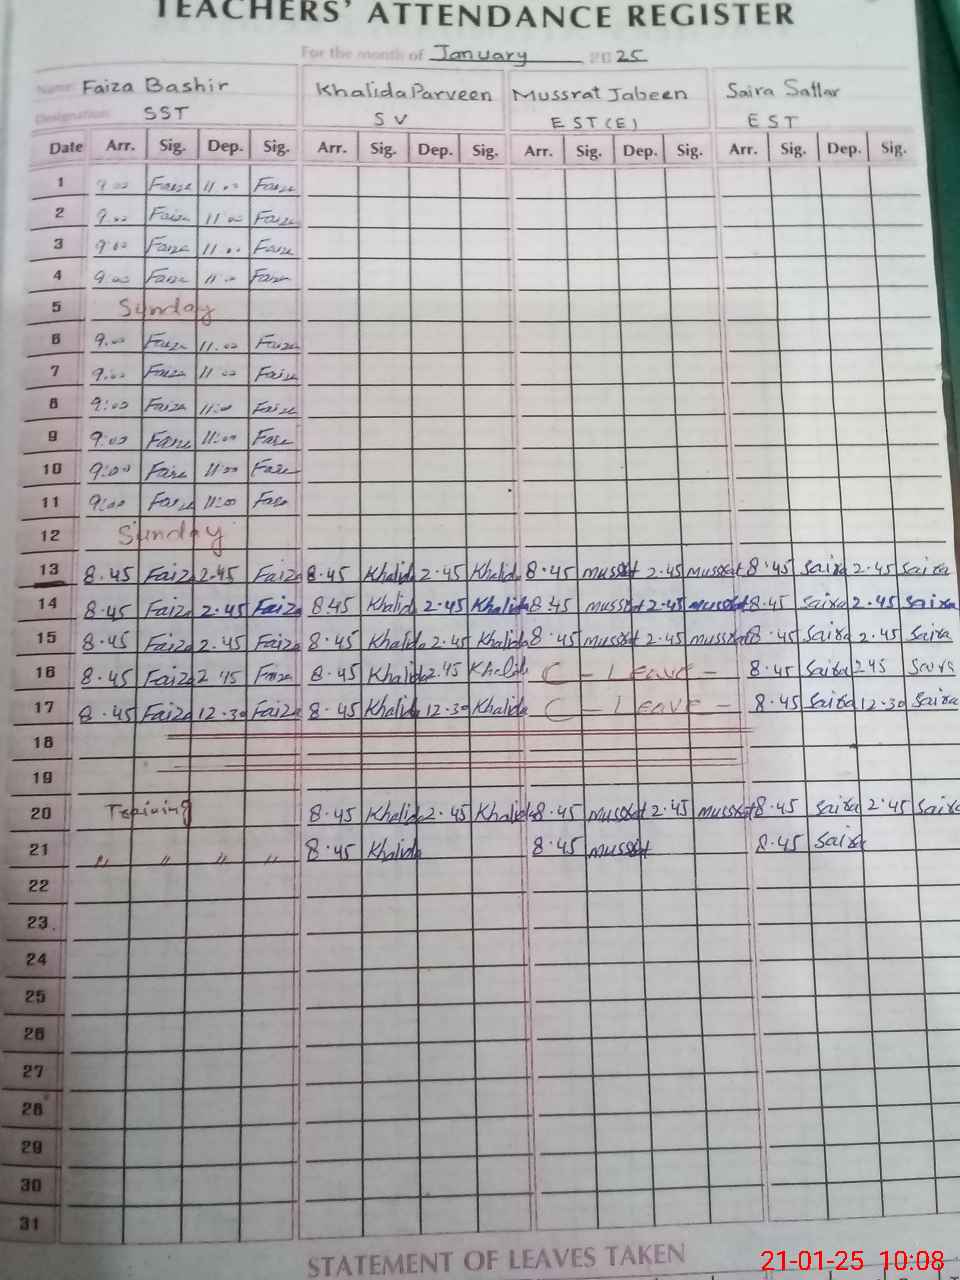 TEACHERS' ATTENDANCE REGISTER
For the month of January 20 25
Name: Faiza Bashir Khalida Parveen Mussrat Jabeen Saira Sattar
Designation: SST SV EST(E) EST
Date Arr. Sig. Dep. Sig. Arr. Sig. Dep. Sig. Arr. Sig. Dep. Sig. Arr. Sig. Dep. Sig.
1 9.00 Faiza 11.00 Faiza
2 9.00 Faiza 11.00 Faiza
3 9:00 Faiza 11.00 Faiza
4 9.00 Faiza 11.00 Faiza
5 Sunday
6 9.00 Faiza 11.00 Faiza
7 9.00 Faiza 11.00 Faiza
8 9:00 Faiza 11:00 Faiza
9 9:00 Faiza 11:00 Faiza
10 9:00 Faiza 11:00 Faiza
11 9:00 Faiza 11:00 Faiza
12 Sunday
13 8.45 Faiza 2.45 Faiza 8.45 Khalida 2.45 Khalida 8.45 mussrat 2.45 mussrat 8.45 Saira 2.45 Saira
14 8.45 Faiza 2.45 Faiza 8.45 Khalida 2.45 Khalida 8.45 mussrat 2.45 mussrat 8.45 Saira 2.45 Saira
15 8.45 Faiza 2.45 Faiza 8.45 Khalida 2.45 Khalida 8.45 mussrat 2.45 mussrat 8.45 Saira 2.45 Saira
16 8.45 Faiza 2.45 Faiza 8.45 Khalida 2.45 Khalida C - Leave - 8.45 Saira 2.45 Saira
17 8.45 Faiza 12.30 Faiza 8.45 Khalida 12.30 Khalida C - Leave - 8.45 Saira 12.30 Saira
18
19
20 Training 8.45 Khalida 2.45 Khalida 8.45 mussrat 2.45 mussrat 8.45 Saira 2.45 Saira
21 " " " " 8.45 Khalida 8.45 mussrat 8.45 Saira
22
23
24
25
26
27
28
29
30
31
STATEMENT OF LEAVES TAKEN
21-01-25 10:08